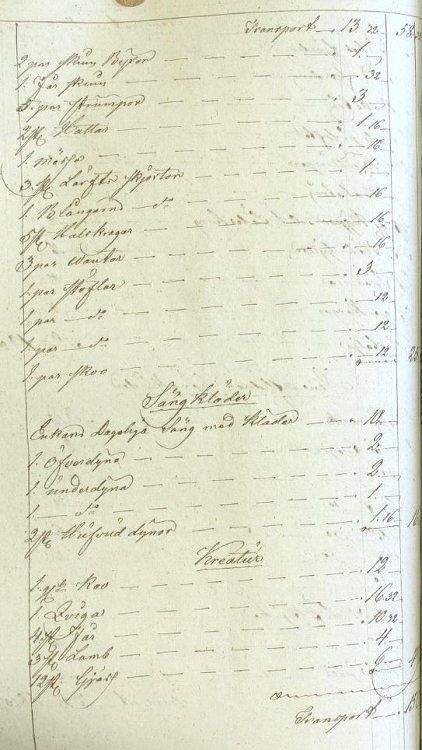 Transport — . 13. 32 58
2 par skinn Byxor — 1.
1. Får skinn — 32
5. par strumpor — . 3.
2 st Hattar — . 1. 16
1 mössa — 16
3. st Lärfts skjortor — . 1.
1. Blångarns do — 16
5 st Halskragar — 16
3 par Wantar — 16
1. par Stöflar — . 3.
1. par do — 12
1. par do — 12
1. par Skoo — 12
Sängkläder
Enkans Dageliga Säng med kläder — . 10.
1. Öfverdyna — . 2.
1 Underdyna — . 2.
1 do — . 1.
2 st Hufvud dynor — . 1. 16
Kreatur
1. st Koo — . 12
1 Qviga — . 16. 32
4. st Får — . 10. 32
3 st Lamb — . 4.
12 st — . 6
Transport — .